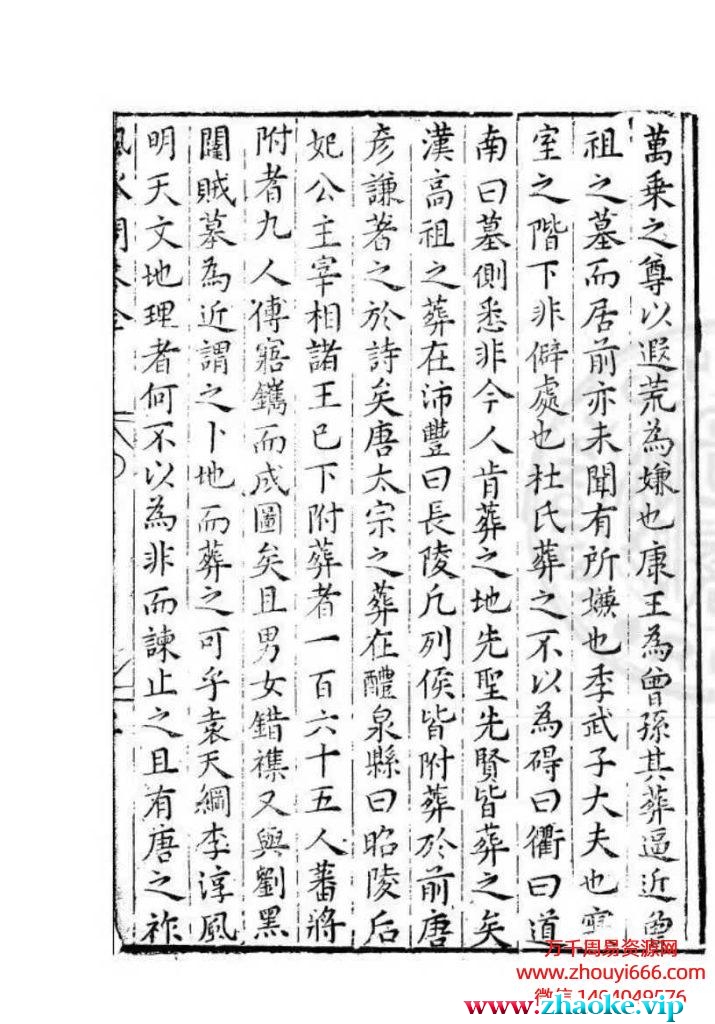 萬乗之尊以遐荒為嫌也康王為曾孫其葬逼近曾
祖之墓而居前亦未聞有所嫌也季武子大夫也寢
室之階下非僻處也杜氏葬之不以為碍曰衢曰道
南曰墓側悉非今人肯葬之地先聖先賢皆葬之矣
漢高祖之葬在沛豐曰長陵凡列侯皆附葬於前唐
彦謙著之於詩矣唐太宗之葬在醴泉縣曰昭陵后
妃公主宰相諸王已下附葬者一百六十五人蕃將
附者九人傅寤鐫而成圖矣且男女錯襍又與劉黑
闥賊墓為近謂之卜地而葬之可乎袁天綱李淳風
明天文地理者何不以為非而諫止之且有唐之祚
万千周易资源网
www.zhouyi666.com
微信
www.zhaoke.vip